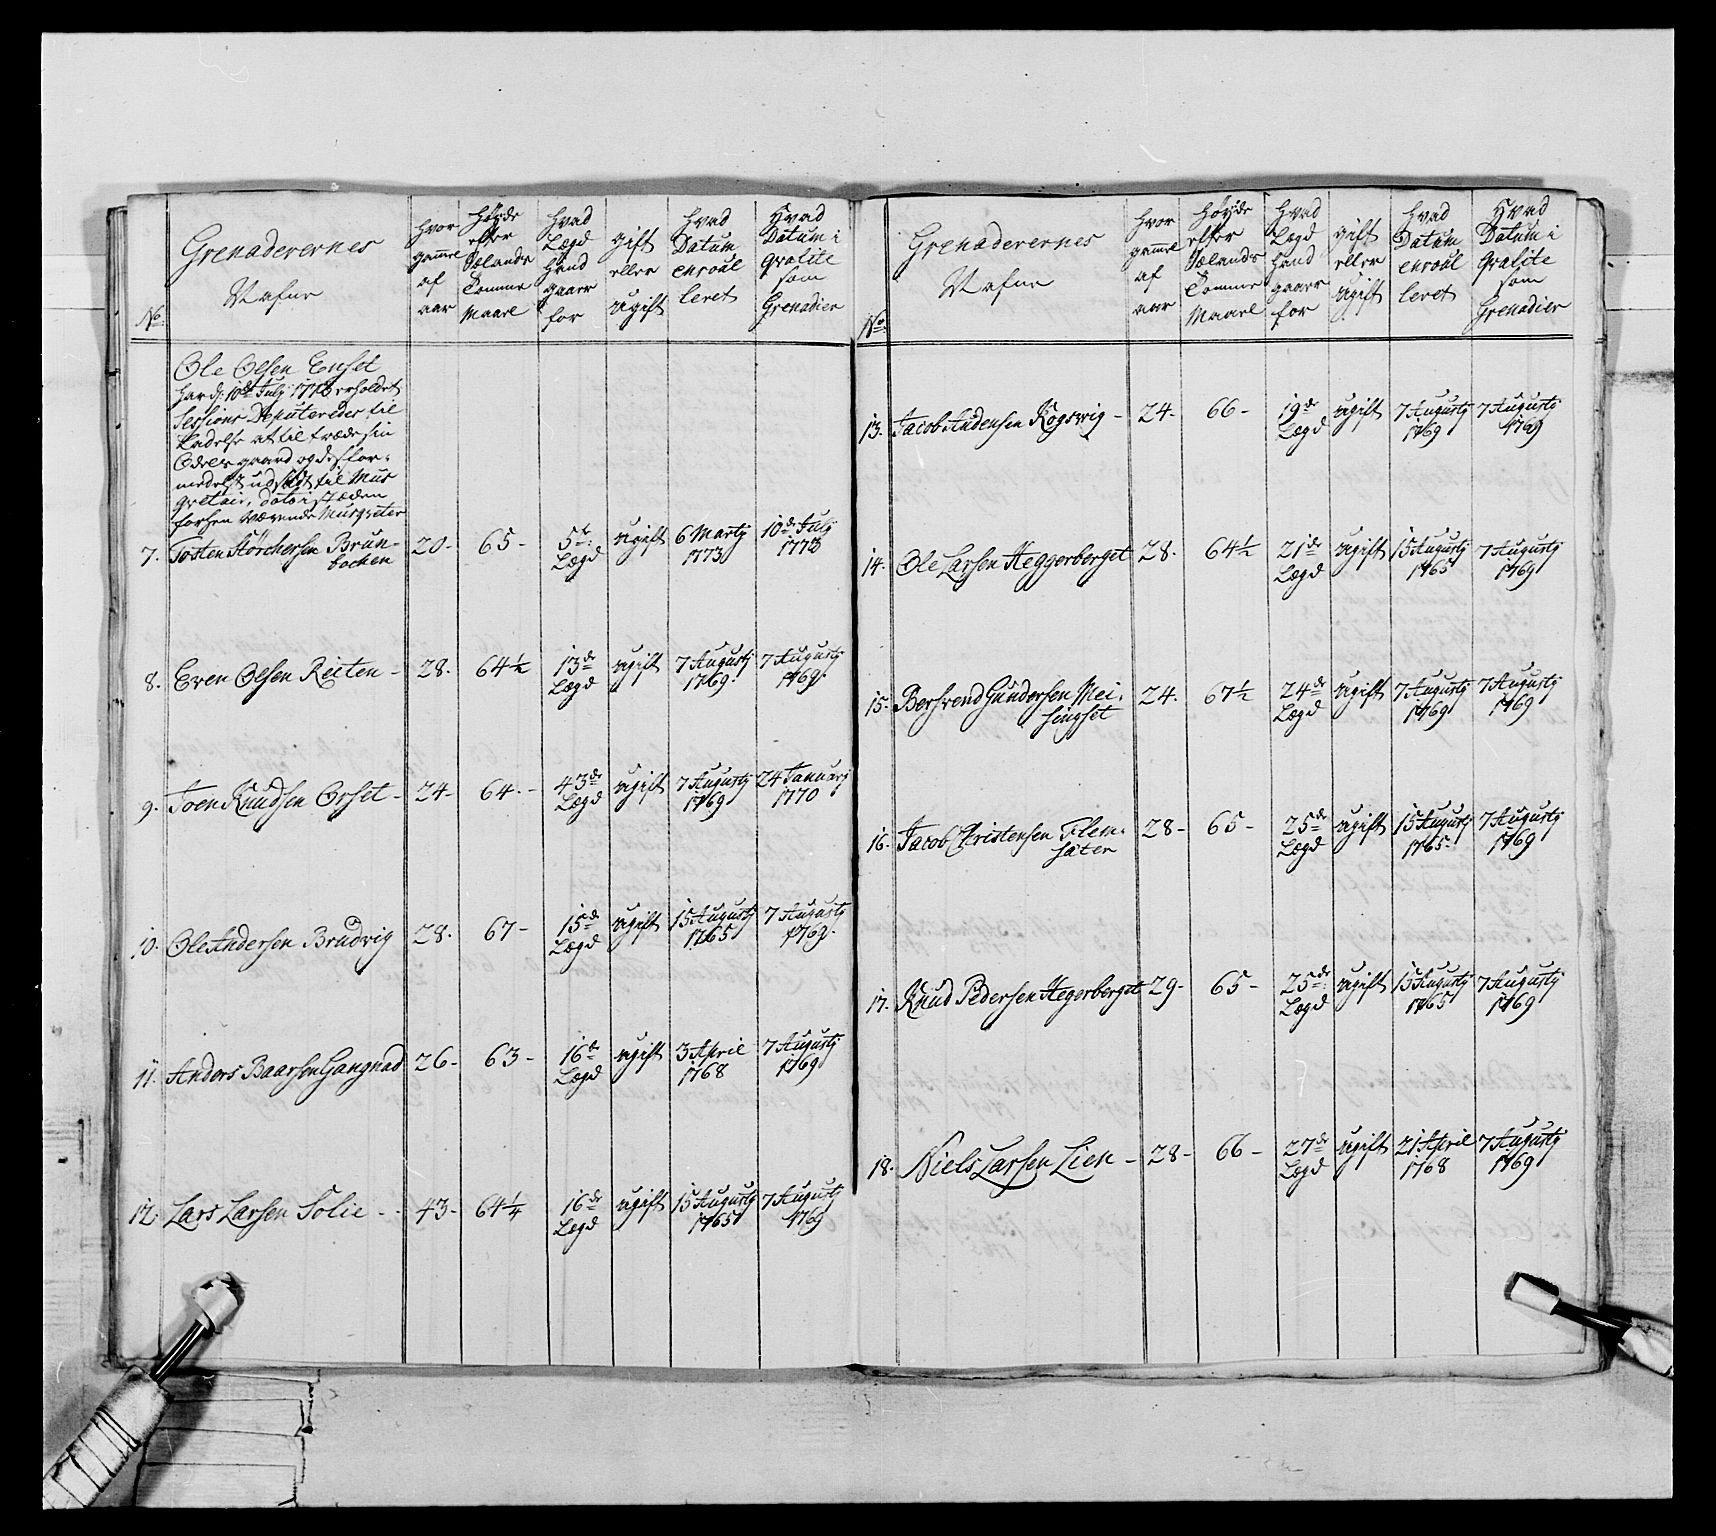 No
Grenaderernes
Nafne
hvor
gamle
af
aar
Høyde
efter
Sælands
Tomme
Maal
hvad
Lægd
hand
gaar
for
gift
eller
ugift
hvad
Datum
enroul
leret
Hvad
Datum i
qvalite
som
Grenadier
Ole Olsen Enset
har d: 10de July 1773 erholdet
Sessions Deputeredes til
ladelse at til træde sin
Odels gaard og des for-
medelst udsadt til Mus
qvetair, dato i stæden
forhen værende Musqveter
7. Tosten Störchersen Brun- 20- 65- 5te Lægd ugift 6 Martij 1773 10de July 1773
bochen
8. Even Olsen Reiten - 28. 64½ 13de Lægd ugift 7 Augustj 1769. 7 Augustj 1769.
9. Joen Knudsen Orset - 24- 64.- 43de Lægd ugift 7 Augustj 1769 24 Januarj 1770
10. Ole Andersen Brudvig 28. 67- 15de Lægd ugift 15 Augustj 1765 7 Augustj 1769.
11. Anders Baarsen Gangnad 26- 63- 16de Lægd ugift 3 April 1768 7 Augustj 1769
12. Lars Larsen Solie - - 43- 64¼ 16de Lægd ugift 15 Augustj 1765 7 Augustj 1769
No
Grenaderernes
Nafne
hvor
gamle
af
aar
Høyde
efter
Sælands
Tomme
Maal
Hvad
Lægd
hand
gaar
for
gift
eller
ugift
hvad
Datum
enroul
leret
Hvad
Datum i
qvalite
som
Grenadier
13. Jacob Andersen Kogsvig - 24. 66- 19de Lægd ugift 7 Augustj 1769 7 Augustj 1769
14. Ole Larsen Heggerberget 28. 64½ 21de Lægd ugift 15 Augustj 1765 7 Augustj 1769
15. Bersvend Gundersen Mei- 24. 67½ 24de Lægd ugift 7 Augustj 1769 7 Augustj 1769
singset
16. Jacob Christensen Flem- 28- 65- 25de Lægd ugift 15 Augustj 1765. 7 Augustj 1769
säter
17. Knud Pedersen Hegerberget 29- 65- 25de Lægd ugift 15 Augustj 1765 7 Augustj 1769
18. Niels Larsen Lien - 28- 66- 27de Lægd ugift 21 April 1768 7 Augustj 1769